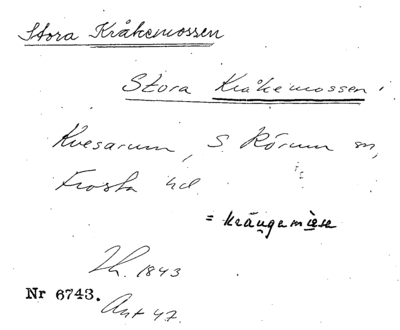 Stora Kråkemossen
Stora Kråkemossen
Kvesarum, S. Rörum sn,
Frosta hd
= krängemåse
1843
Nr 6743.
Ant 47.